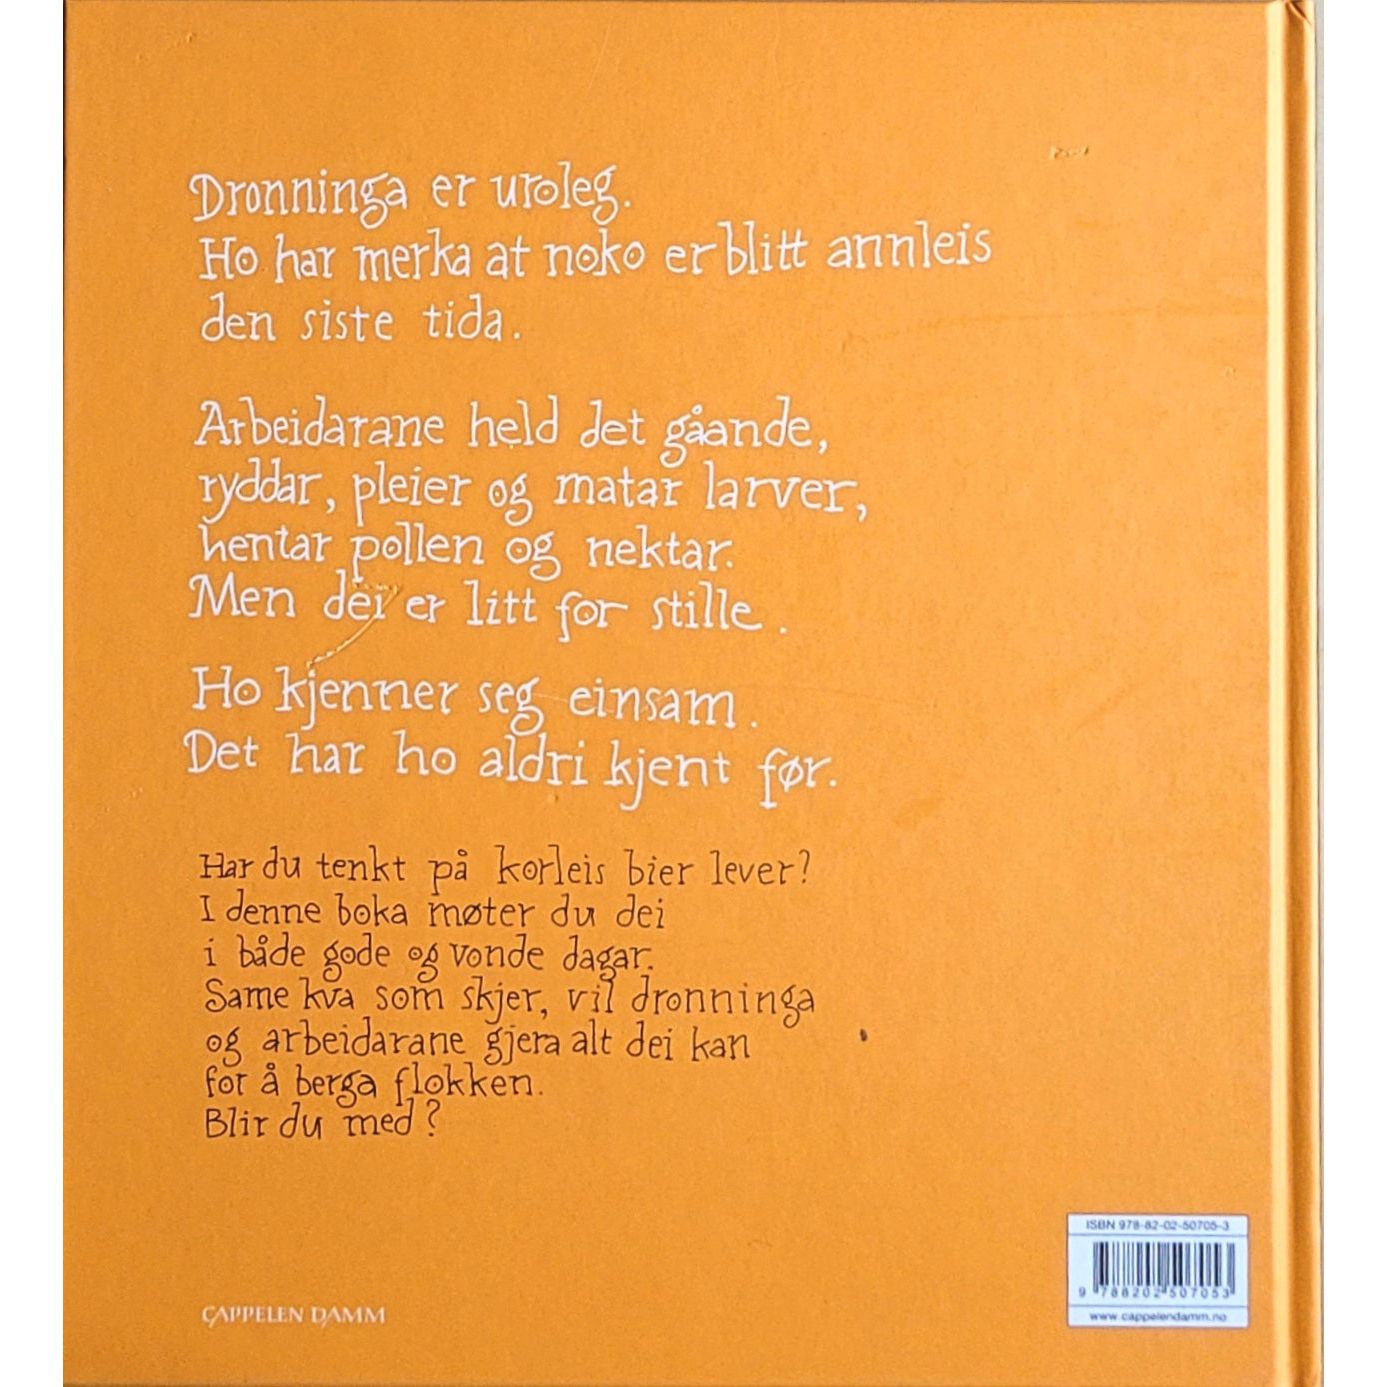 Dronninga er uroleg.
Ho har merka at noko er blitt annleis
den siste tida.
Arbeidarane held det gåande,
ryddar, pleier og matar larver,
hentar pollen og nektar.
Men dei er litt for stille.
Ho kjenner seg einsam.
Det har ho aldri kjent før.
Har du tenkt på korleis bier lever?
I denne boka møter du dei
i både gode og vonde dagar.
Same kva som skjer, vil dronninga
og arbeidarane gjera alt dei kan
for å berga flokken.
Blir du med?
ISBN 978-82-02-50705-3
9 788202 507053
www.cappelendamm.no
CAPPELEN DAMM